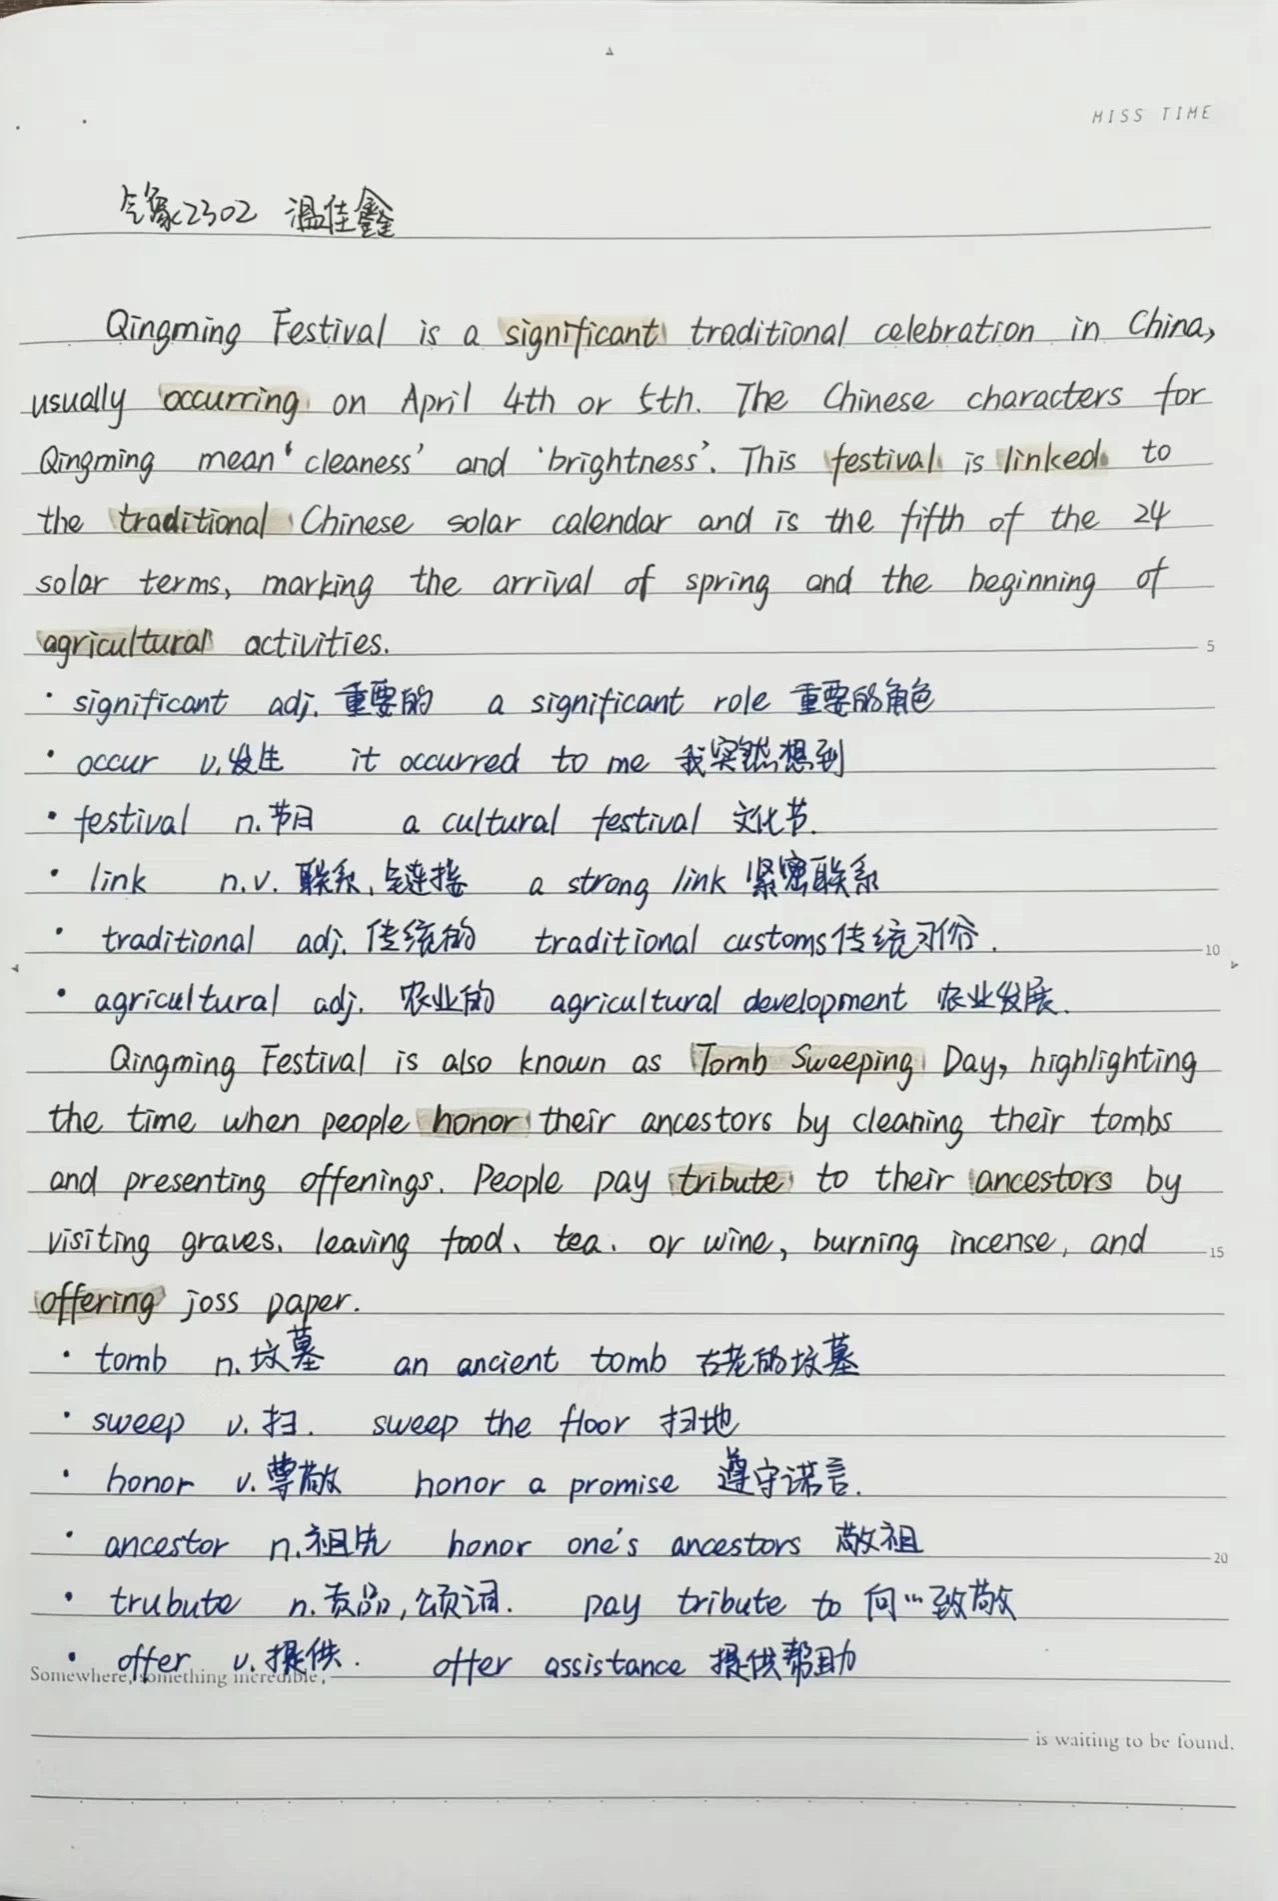 MISS TIME
气象2302 温佳鑫
Qingming Festival is a significant traditional celebration in China,
usually occurring on April 4th or 5th. The Chinese characters for
Qingming mean ‘cleaness’ and ‘brightness’. This festival is linked to
the traditional Chinese solar calendar and is the fifth of the 24
solar terms, marking the arrival of spring and the beginning of
agricultural activities.
5
· significant adj. 重要的 a significant role 重要的角色
· occur v.发生 it occurred to me 我突然想到
· festival n.节日 a cultural festival 文化节.
· link n.v. 联系, 连接 a strong link 紧密联系
· traditional adj. 传统的 traditional customs传统习俗.
10
· agricultural adj. 农业的 agricultural development 农业发展.
Qingming Festival is also known as Tomb Sweeping Day, highlighting
the time when people honor their ancestors by cleaning their tombs
and presenting offenings. People pay tribute to their ancestors by
visiting graves, leaving food, tea, or wine, burning incense, and
15
offering joss paper.
· tomb n.坟墓 an ancient tomb 古老的坟墓
· sweep v.扫. sweep the floor 扫地
· honor v.尊敬 honor a promise 遵守诺言.
· ancestor n.祖先 honor one's ancestors 敬祖
20
· trubute n.贡品,颂词. pay tribute to 向…致敬
· offer v.提供. offer assistance 提供帮助
Somewhere, something incredible,
is waiting to be found.